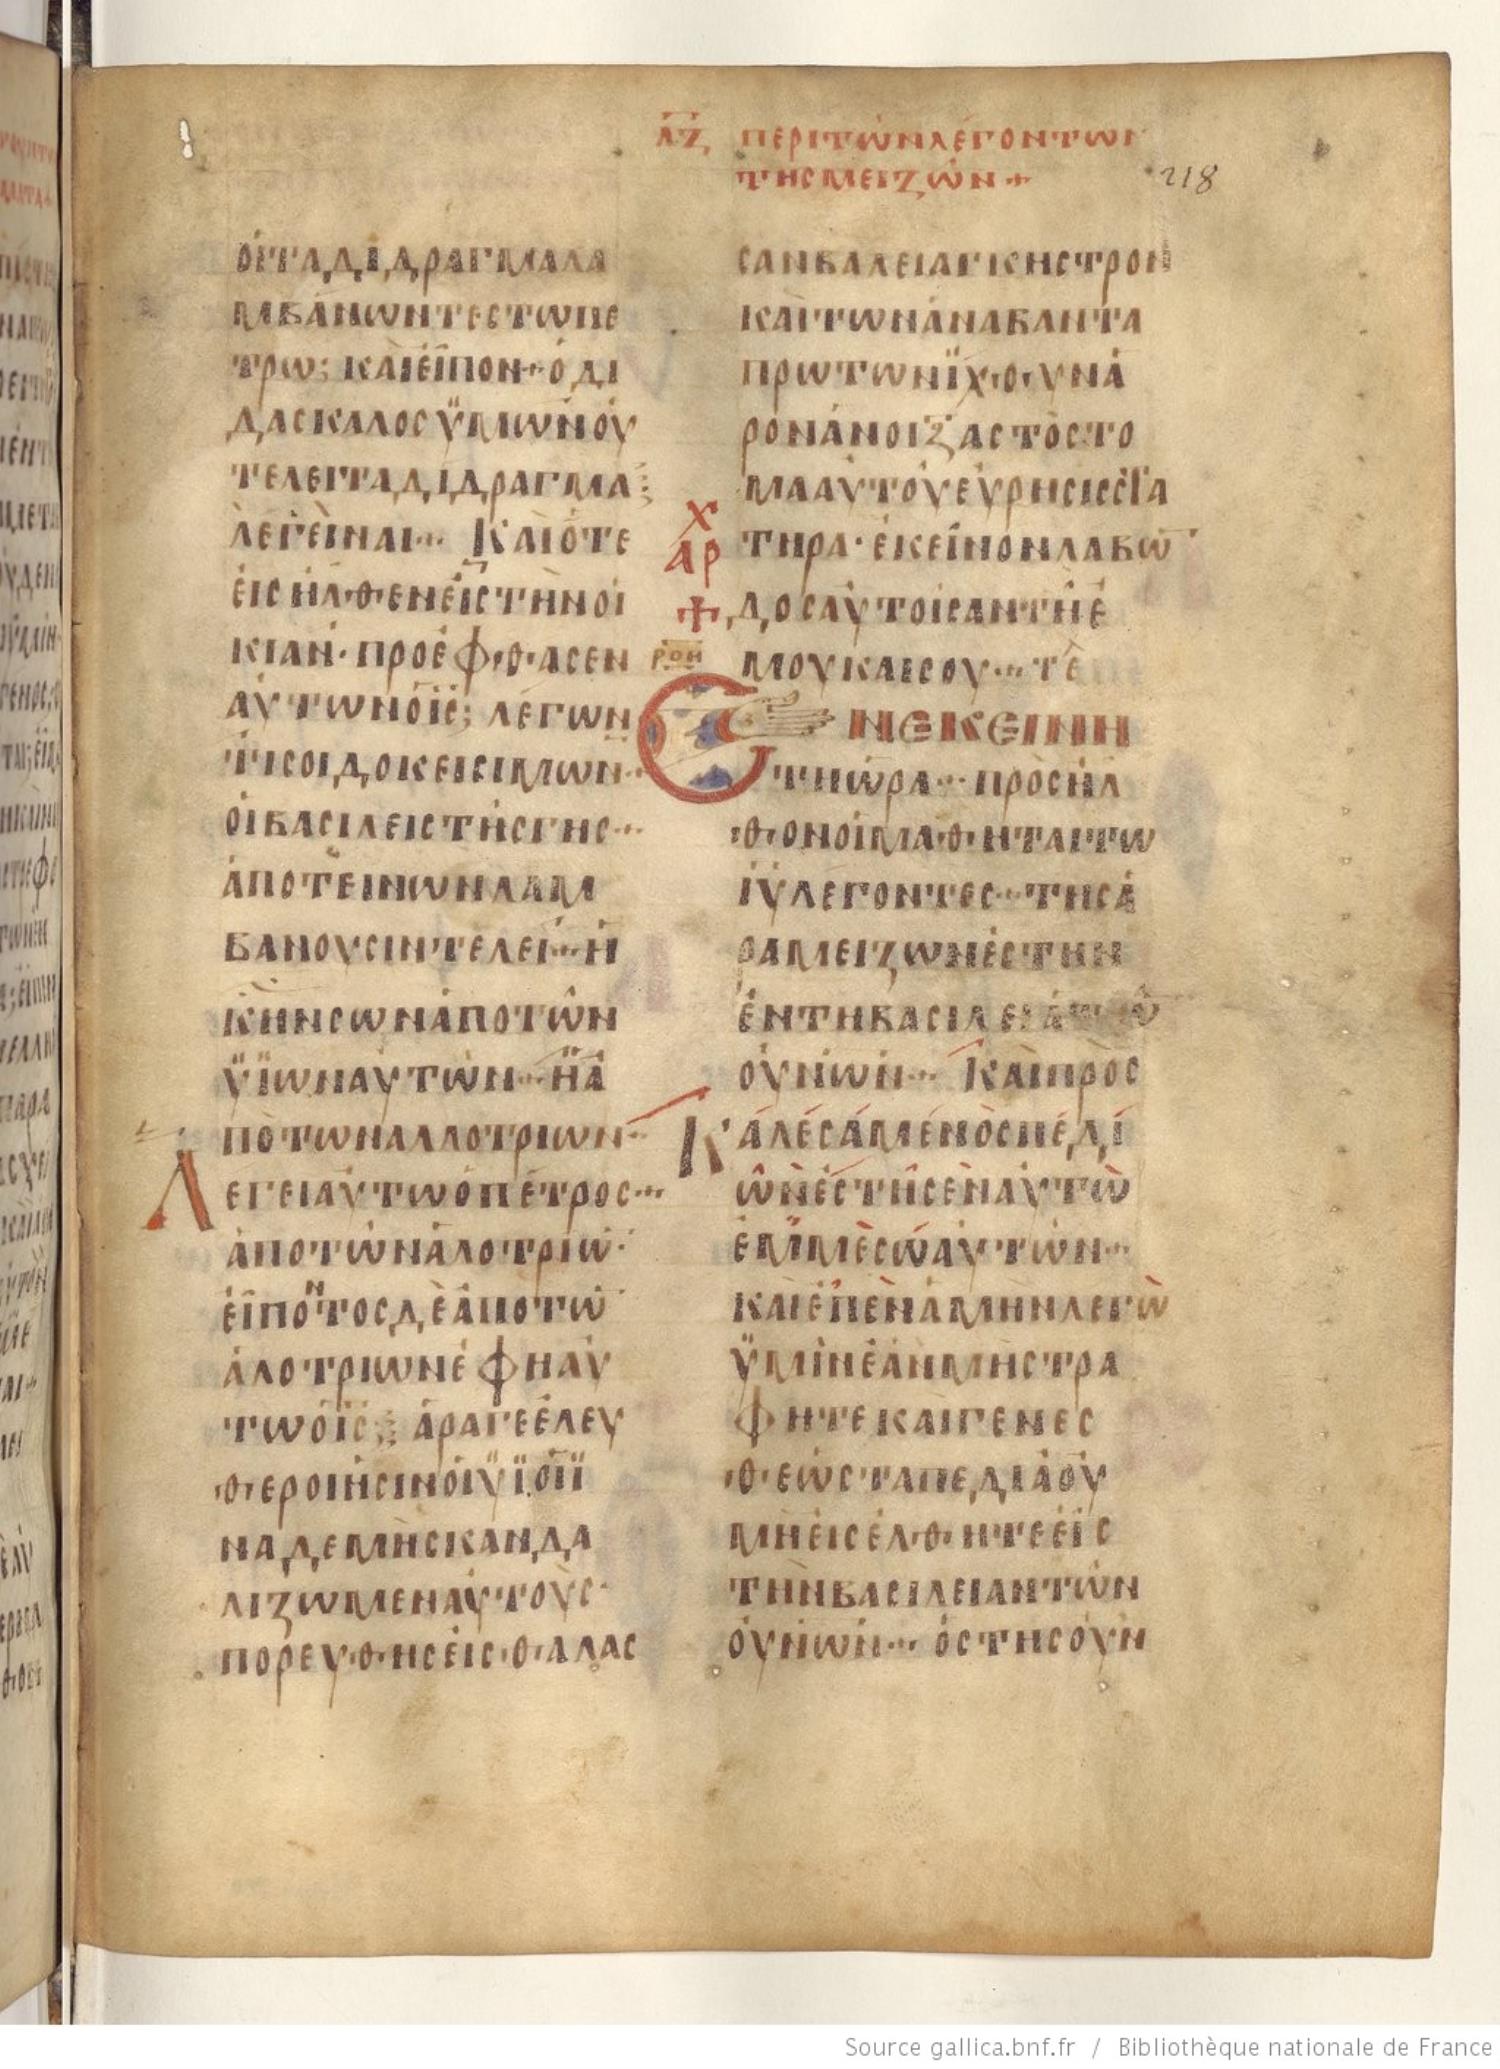 ΛΖ ΠΕΡΙΤῶΝΛΕΓΟΝΤΩΝ
ΤΗCΜΕΙΖῶΝ+
218
ΟΙΤΑΔΙΔΡΑΓΜΑΛΑ
ΜΒΑΝΩΝΤΕCΤΩΠΕ
ΤΡΩ; ΚΑΙΕΙΠΟΝ·Ο ΔΙ
ΔΑCΚΑΛΟCΫΜΩΝΟΥ
ΤΕΛΕΙΤΑΔΙΔΡΑΓΜΑ;
ΛΕΓΕΙΝΑΙ·· ΚΑΙΟΤΕ
ΕΙCΗΛΘΕΝΕΙCΤΗΝΟΙ
ΚΙΑΝ· ΠΡΟΕΦΘΑCΕΝ
ΑΥΤΩΝΟΙC; ΛΕΓΩΝ
ΤΙCΟΙΔΟΚΕΙCΙΜΩΝ··
ΟΙΒΑCΙΛΕΙCΤΗCΓΗC···
ΑΠΟΤΕΙΝΩΝΛΑΜ
ΒΑΝΟΥCΙΝΤΕΛΕΙ··Η
ΚΗΝCΩΝΑΠΟΤΩΝ
ΫΪΩΝΑΥΤΩΝ··ΗΑ
ΠΟΤΩΝΑΛΛΟΤΡΙΩΝ··
ΛΕΓΕΙΑΥΤΩΟΠΕΤΡΟC···
ΑΠΟΤΩΝΑΛΟΤΡΙΩ̅·
ΕΙΠΟΝΤΟCΔΕΑΠΟΤΩ̅
ΑΛΟΤΡΙΩΝΕΦΗΑΥ
ΤΩΟΙC; ΑΡΑΓΕΕΛΕΥ
ΘΕΡΟΙΗCΙΝΟΙΫΪΟΙΪ
ΝΑΔΕΜΗCΚΑΝΔΑ
ΛΙΖΩΜΕΝΑΥΤΟΥC·
ΠΟΡΕΥΘΗCΕΙCΘΑΛΑC
CΑΝΒΑΛΕΙΑΓΚΗCΤΡΟΝ
ΚΑΙΤΩΝΑΝΑΒΑΝΤΑ
ΠΡΩΤΩΝΪΧΘΥΝΑ
ΡΟΝΑΝΟΙΞΑCΤΟCΤΟ
ΜΑΑΥΤΟΥΕΥΡΗCΙCCΤΑ
Χ
ΑΡ
ΤΗΡΑ· ΕΚΕΙΝΟΝΛΑΒΩ̅
ΔΟCΑΥΤΟΙCΑΝΤΗΕ
ΡΟΗ
ΜΟΥΚΑΙCΟΥ··· ΤΕ
ΕΝΕΚΕΙΝΗ
ΤΗΩΡΑ··· ΠΡΟCΗΛ
ΘΟΝΟΙΜΑΘΗΤΑΙΤΩ
ΙΥΛΕΓΟΝΤΕC··ΤΗCΑ
ΡΑΜΕΙΖΩΝΕCΤΗΝ
ΕΝΤΗΒΑCΙΛΕΙΑΤΩ̅
ΟΥΝΩΝ··· ΚΑΙΠΡΟC
ΚΑΛΕCΑΜΕΝΟCΠΕΔΙ
ΩΝΕCΤΗCΕΝΑΥΤΩ
ΕΜΜΕCΩΑΥΤΩΝ···
ΚΑΙΕΙΠΕΝΑΜΗΝΛΕΓΩ
ΫΜΙΝΕΑΝΜΗCΤΡΑ
ΦΗΤΕΚΑΙΓΕΝΕC
ΘΕΩCΤΑΠΕΔΙΑΟΥ
ΜΗΕΙCΕΛΘΗΤΕΕΙC
ΤΗΝΒΑCΙΛΕΙΑΝΤΩΝ
ΟΥΝΩΝ··· ΟCΤΗCΟΥΝ
Source gallica.bnf.fr / Bibliothèque nationale de France